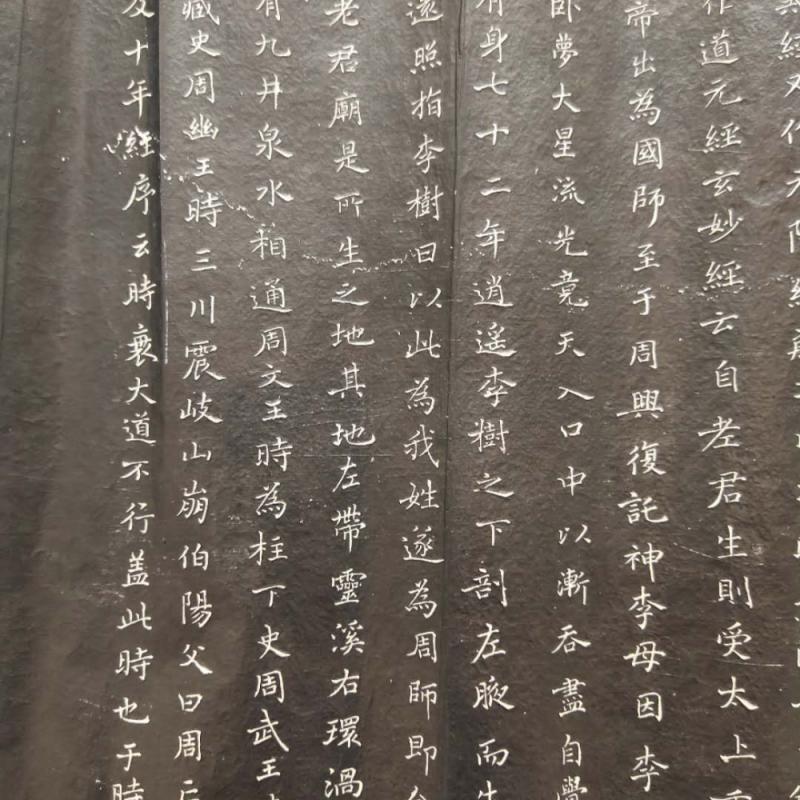 經
作道元經玄妙經云自老君生則受太上
帝出為國師至于周興復託神李母因李
卧夢大星流光竟天入口中以漸吞盡自覺
有身七十二年逍遥李樹之下剖左腋而生
遂照指李樹曰以此為我姓遂為周師即
老君廟是所生之地其地左帶靈溪右環渦
有九井泉水相通周文王時為柱下史周武王
藏史周幽王時三川震岐山崩伯陽父曰周
及十年經序云時衰大道不行盖此時也于時